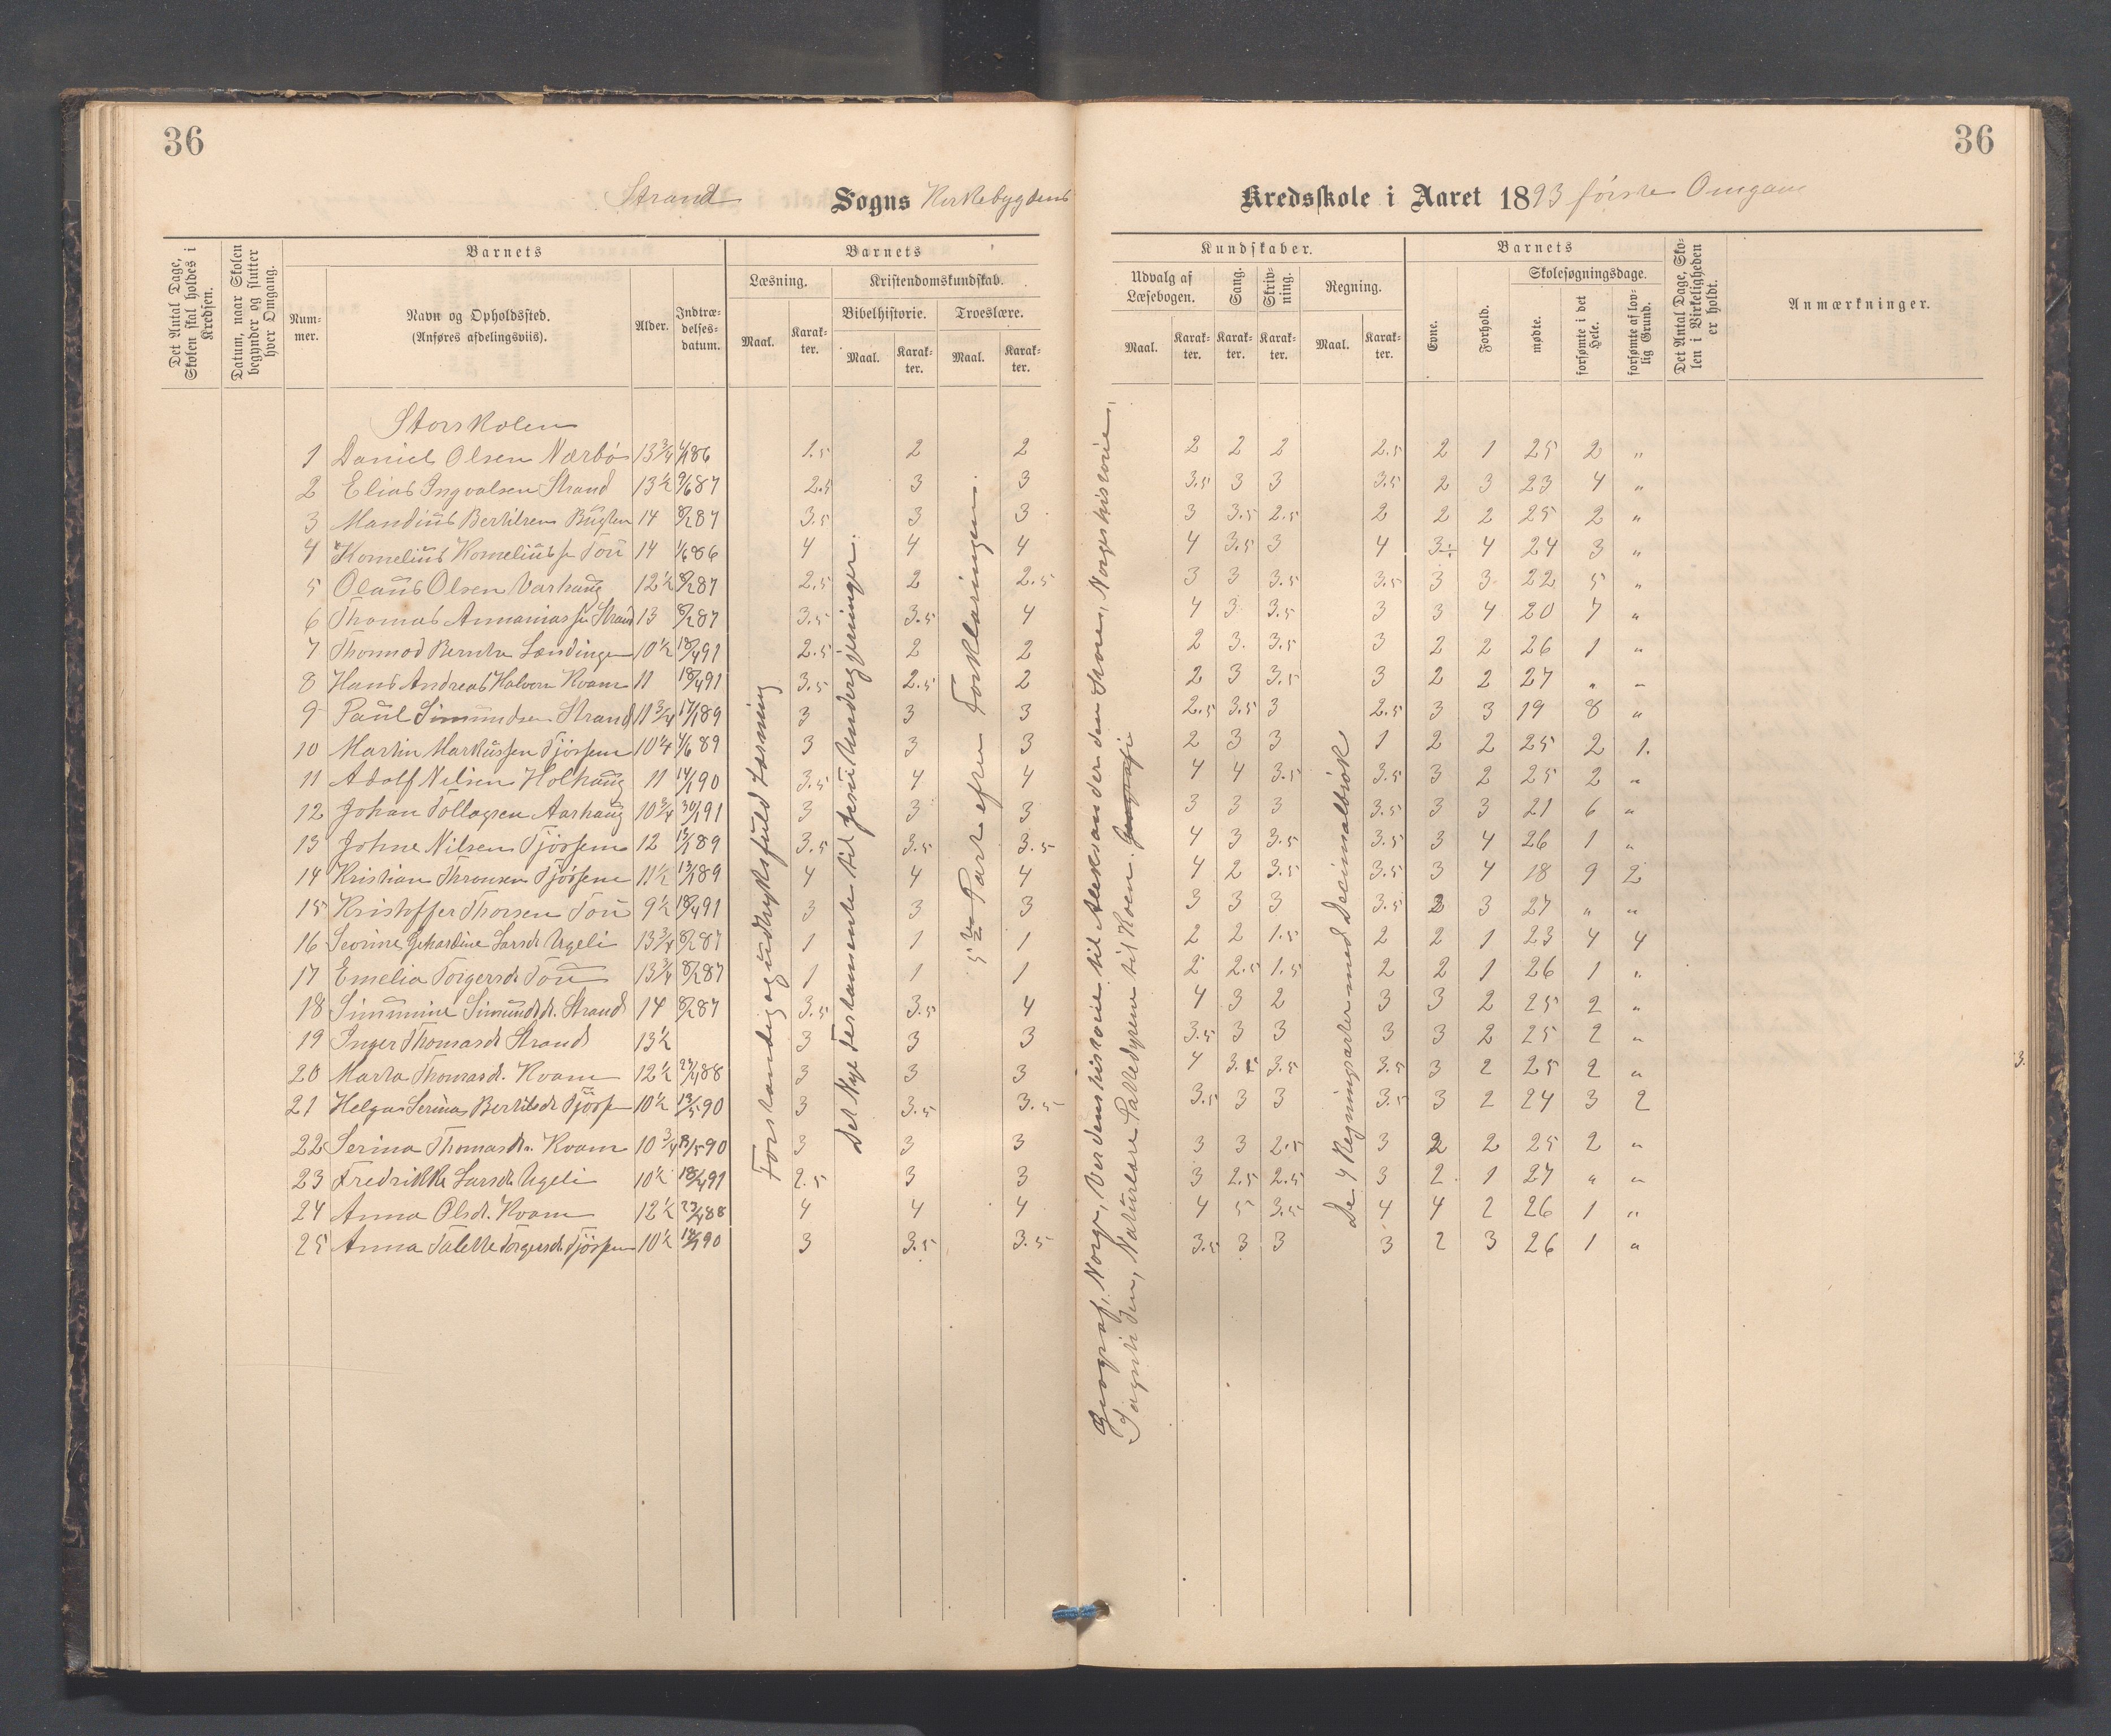 36
36
Strand Sogns Kirkebygdens Kredsskole i Aaret 1893 første Omgang
Det Antal Dage, Skolen skal holdes i Kredsen.
Datum, naar Skolen begynder og slutter hver Omgang.
Barnets
Nummer.
Navn og Opholdssted. (Anføres afdelingsviis).
Alder.
Indtrædelsesdatum.
Barnets
Læsning.
Maal.
Karakter.
Kristendomskundskab.
Bibelhistorie.
Maal.
Karakter.
Troeslære.
Maal.
Karakter.
Kundskaber.
Udvalg af Læsebogen.
Maal.
Karakter.
Sang.
Karakter.
Skrivning.
Karakter.
Regning.
Maal.
Karakter.
Barnets
Evne.
Forhold.
Skolesøgningsdage.
mødte.
forsømte i det Hele.
forsømte af lovlig Grund.
Det Antal Dage, Skolen i Virkeligheden er holdt.
Anmærkninger.
Storskolen
1 Daniel Olsen Nærbø 13 3/4 86 1.5 2 2 2 2 2 2.5 2 1 25 2 "
2 Elias Ingvalsen Strand 13 1/2 9/6 87 2.5 3 3 3.5 3 3 3.5 2 3 23 4 "
3 Mandius Bertilsen 14 8/2 87 3.5 3 3 3 3.5 2.5 2 2 2 25 2 "
4 Kornelius Kornelius sn Tou 14 1/6 86 4 4 4 4 3.5 3 4 3÷ 4 24 3 "
5 Olaus Olsen Varhaug 12 1/2 8/2 87 2.5 2 2.5 3 3 3.5 3.5 3 3 22 5 "
6 Thomas Annanias sn Strand 13 8/2 87 3.5 3.5 4 4 3 3.5 3 3 4 20 7 "
7 Thormod Berntsn Lændingen 10 1/2 18/4 91 2.5 2 2 2 3 3.5 3 2 2 26 1 "
8 Hans Andreas Halvorsn Kvam 11 18/4 91 3.5 2.5 2 2 3 3.5 3 2 2 27 " "
9 Paul Simundsen Strand 11 3/4 17/1 89 3 3 3 2.5 3.5 3 2.5 3 3 19 8 "
10 Martin Markussen Tjøssem 10 1/4 4/6 89 3 3 3 2 3 3 1 2 2 25 2 1.
11 Adolf Nilsen Holhaug 11 14/1 90 3.5 4 4 4 4 3.5 3.5 3 2 25 2 "
12 Johan Tollagsen Aarhaug 10 3/4 30/1 91 3 3 3 3 3 3 3.5 3 3 21 6 "
13 Johne Nilsen Tjøssem 12 89 3.5 3.5 3.5 4 3 3.5 3.5 3 4 26 1 "
14 Kristian Thronsen Tjøssem 11 1/2 89 4 4 4 4 2 3.5 3.5 3 4 18 9 2
15 Kristoffer Thorsen Tou 9 1/2 18/4 91 3 3 3 3 3 3 3.5 2 3 27 " "
16 Severine Gehardine Larsdt Ugeli 13 3/4 8/2 87 1 1 1 2 2 1.5 2 2 1 23 4 4
17 Emelia Torgersdt Tou 13 3/4 8/2 87 1 1 1 2 2.5 1.5 2 2 1 26 1 "
18 Simmine Simundsdt. Strand 14 8/2 87 3.5 3.5 4 4 3 2 3 3 2 25 2 "
19 Inger Thomasdt Strand 13 1/2 3 3 3 3.5 3 3 3 3 2 25 2 "
20 Marta Thomasdt. Kvam 12 1/2 23/4 88 3 3 3 4 3.5 3.5 3.5 3 2 25 2 "
21 Helga Serina Bertilsdt Tjøss 10 1/2 13/5 90 3 3.5 3.5 3.5 3 3 3.5 3 2 24 3 2
22 Serina Thomasdt. Kvam 10 3/4 13/5 90 3 3 3 3 3 2.5 3 2 2 25 2 "
23 Fredrikke Larsdt Ugeli 10 1/2 18/4 91 2.5 3 3 3 2.5 2.5 3 2 1 27 " "
24 Anna Olsdt. Kvam 12 1/2 23/4 88 4 4 4 4 5 3.5 4 4 2 26 1 "
25 Anna Talette Torgersdt Tjøssem 10 1/2 90 3 3.5 3.5 3.5 3 3 3 2 3 26 1 "
Forstandig og udtryksfuld Læsning
Det Nye Testamente til Jesu Undergjerninger.
5te Part efter Forklaringen.
Geograf, Norge, Verdenshistorie til Aleksander den Store, Norgeshistorie,
Sagnti den, Naturlære Pattedyrene til Koen. Geografi
De 4 Regningsarter med Decimalbrøk
3.